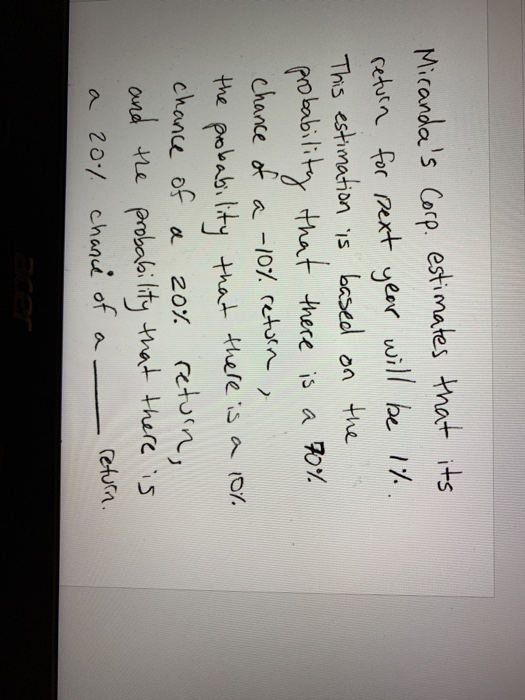 Miranda's Corp. estimates that its
return for next year will be 1%.
This estimation is based on the
probability that there is a 70%
chance of a -10% return,
the probability that there is a 10%
chance of a 20% return,
and the probability that there is
a 20% chance of a ____ return.
acer